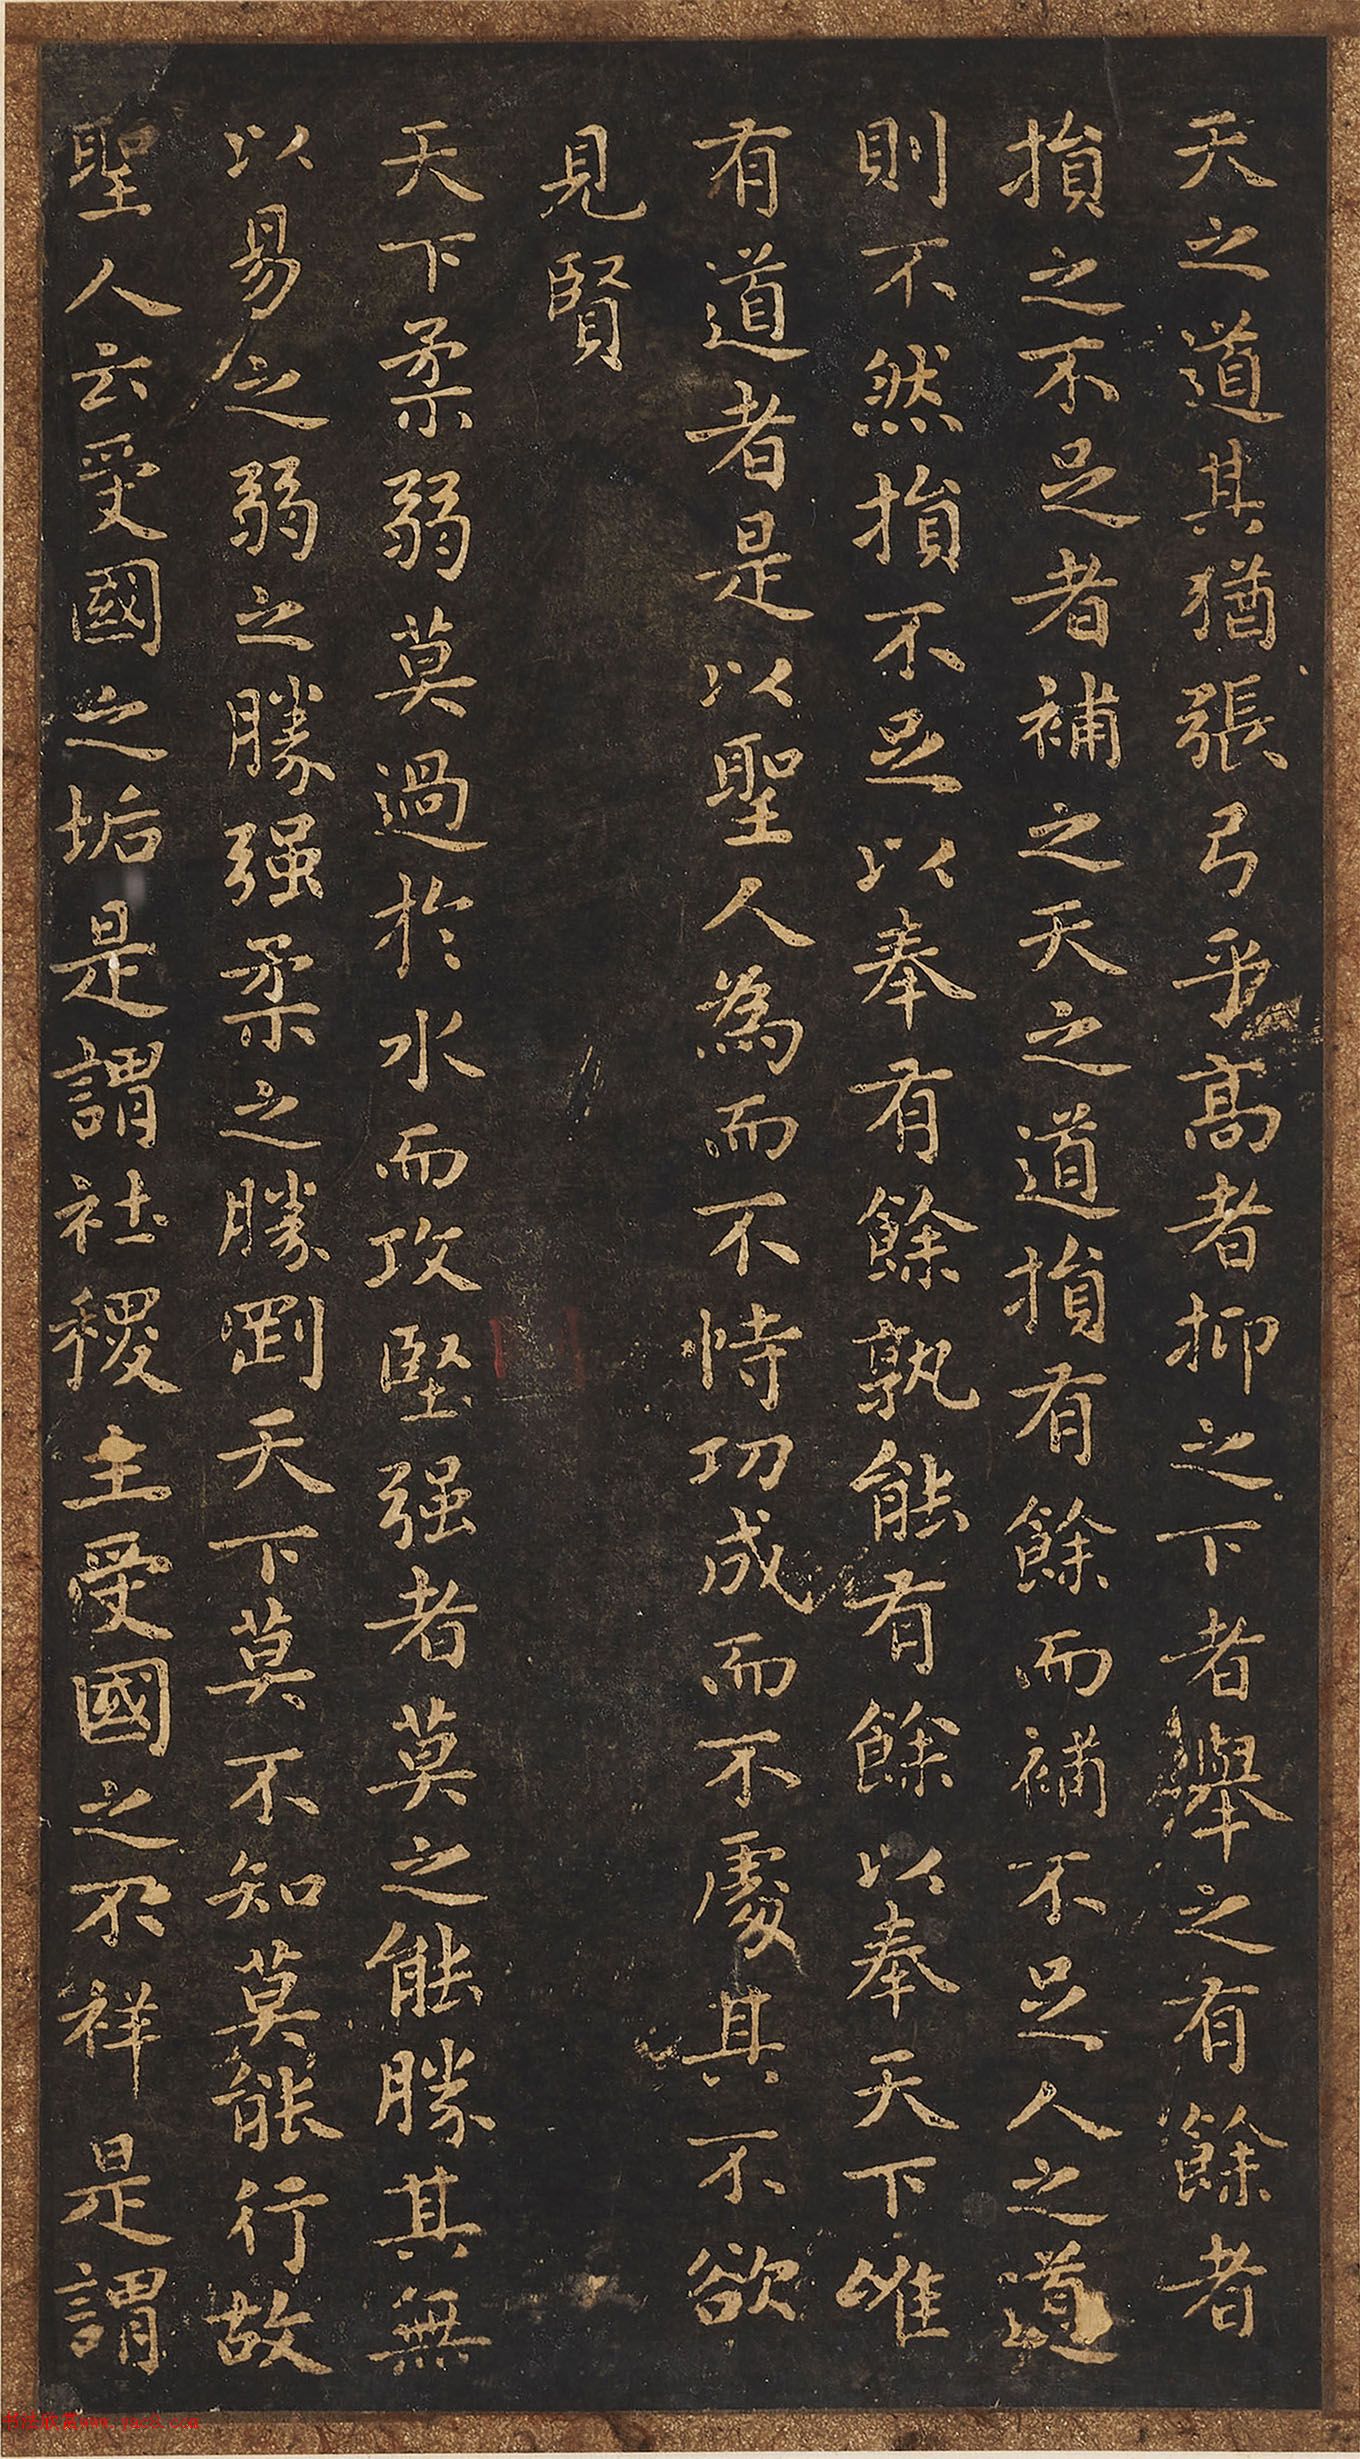 天之道其猶張弓乎高者抑之下者舉之有餘者
損之不足者補之天之道損有餘而補不足人之道
則不然損不足以奉有餘孰能有餘以奉天下唯
有道者是以聖人為而不恃功成而不處其不欲
見賢
天下柔弱莫過於水而攻堅强者莫之能勝其無
以易之弱之勝强柔之勝剛天下莫不知莫能行故
聖人云受國之垢是謂社稷主受國之不祥是謂
书法欣赏www.yac8.com